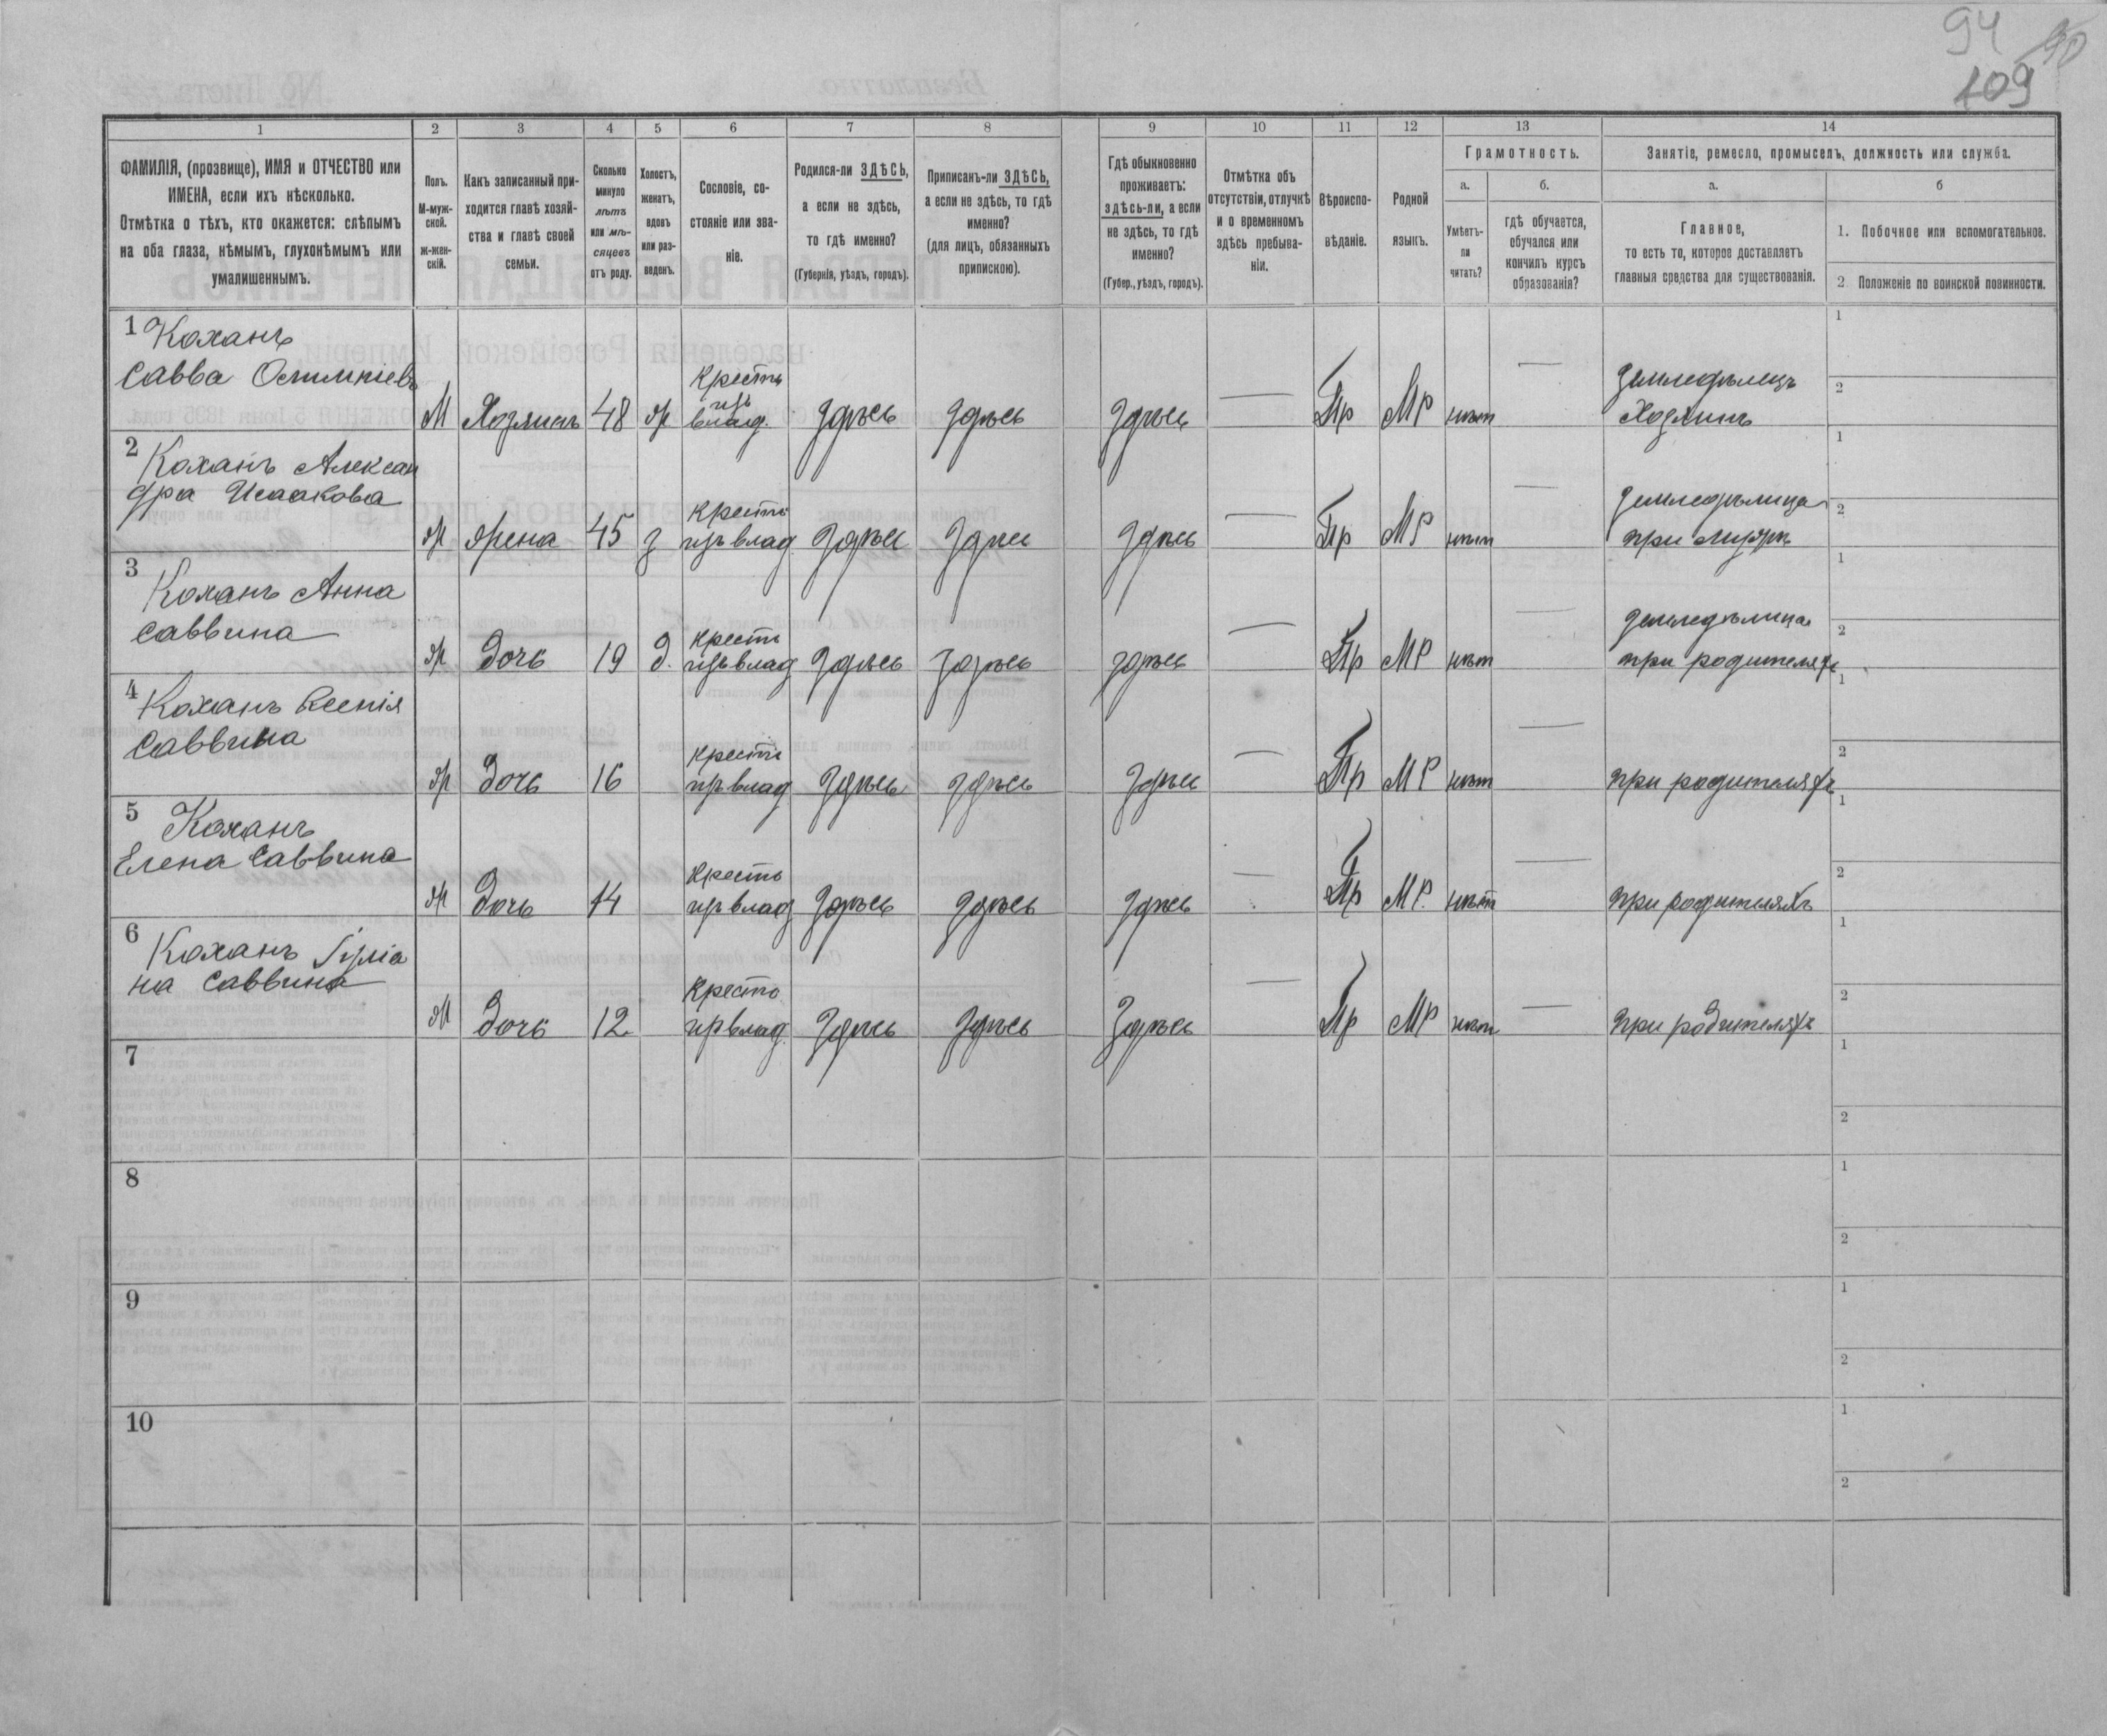 94 90
109
1 2 3 4 5 6 7 8 9 10 11 12 13 14
ФАМИЛІЯ, (прозвище), ИМЯ и ОТЧЕСТВО или
ИМЕНА, если ихъ нѣсколько.
Отмѣтка о тѣхъ, кто окажется: слѣпымъ
на оба глаза, нѣмымъ, глухонѣмымъ или
умалишеннымъ.
Полъ.
М-муж-
ской.
ж-жен-
скій.
Какъ записанный при-
ходится главѣ хозяй-
ства и главѣ своей
семьи.
Сколько
минуло
лѣтъ
или мѣ-
сяцевъ
отъ роду.
Холостъ,
женатъ,
вдовъ
или раз-
веденъ.
Сословіе, со-
стояніе или зва-
ніе.
Родился-ли ЗДѢСЬ,
а если не здѣсь,
то гдѣ именно?
(Губернія, уѣздъ, городъ).
Приписанъ-ли ЗДѢСЬ,
а если не здѣсь, то гдѣ
именно?
(для лицъ, обязанныхъ
припискою).
Гдѣ обыкновенно
проживаетъ:
здѣсь-ли, а если
не здѣсь, то гдѣ
именно?
(Губер., уѣздъ, городъ).
Отмѣтка объ
отсутствіи, отлучкѣ
и о временномъ
здѣсь пребыва-
ніи.
Вѣроиспо-
вѣданіе.
Родной
языкъ.
Грамотность.
а. б.
Умѣетъ-
ли
читать?
гдѣ обучается,
обучался или
кончилъ курсъ
образованія?
Занятіе, ремесло, промыселъ, должность или служба.
а. б
Главное,
то есть то, которое доставляетъ
главныя средства для существованія.
1. Побочное или вспомогательное.
2 Положеніе по воинской повинности.
1 Коханъ
Савва
М Хозяинъ 48 ж Крестьянъ влад. Здѣсь Здѣсь Здѣсь — Пр МР нѣт — Земледѣлецъ Хозяинъ 1 2
2 Коханъ Алексан
дра Исаакова
ж жена 45 з Крестьянъ влад Здѣсь Здѣсь Здѣсь — Пр МР нѣт — Земледѣлица при мужѣ 1 2
3 Коханъ Анна
Саввина
ж дочь 19 д. Крестьянъ влад Здѣсь Здѣсь здѣсь — Пр МР нѣт — Земледѣлица при родителяхъ 1 2
4 Коханъ Ксенія
Саввина
ж дочь 16 влад Здѣсь Здѣсь Здѣсь — Пр МР нѣт — при родителяхъ 1 2
5 Коханъ
Елена Саввина
ж дочь 14 влад Здѣсь Здѣсь Здѣсь — Пр МР. нѣт — при родителяхъ 1 2
6 Коханъ
на Саввина
ж дочь 12 влад. Здѣсь Здѣсь Здѣсь — Пр МР нѣт — при родителяхъ 1 2
7 1 2
8 1 2
9 1 2
10 1 2